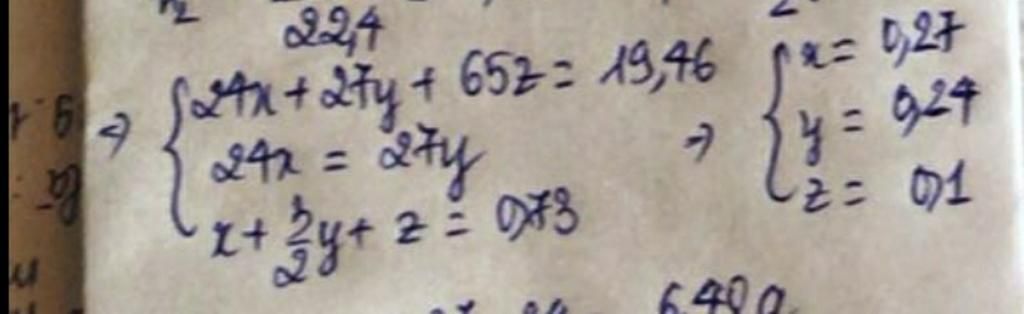 22,4
⇒ { 24x + 27y + 65z = 19,46
24x = 27y
x + 3/2 y + z = 0,73
⇒ { x = 0,27
y = 0,24
z = 0,1
6,48 g